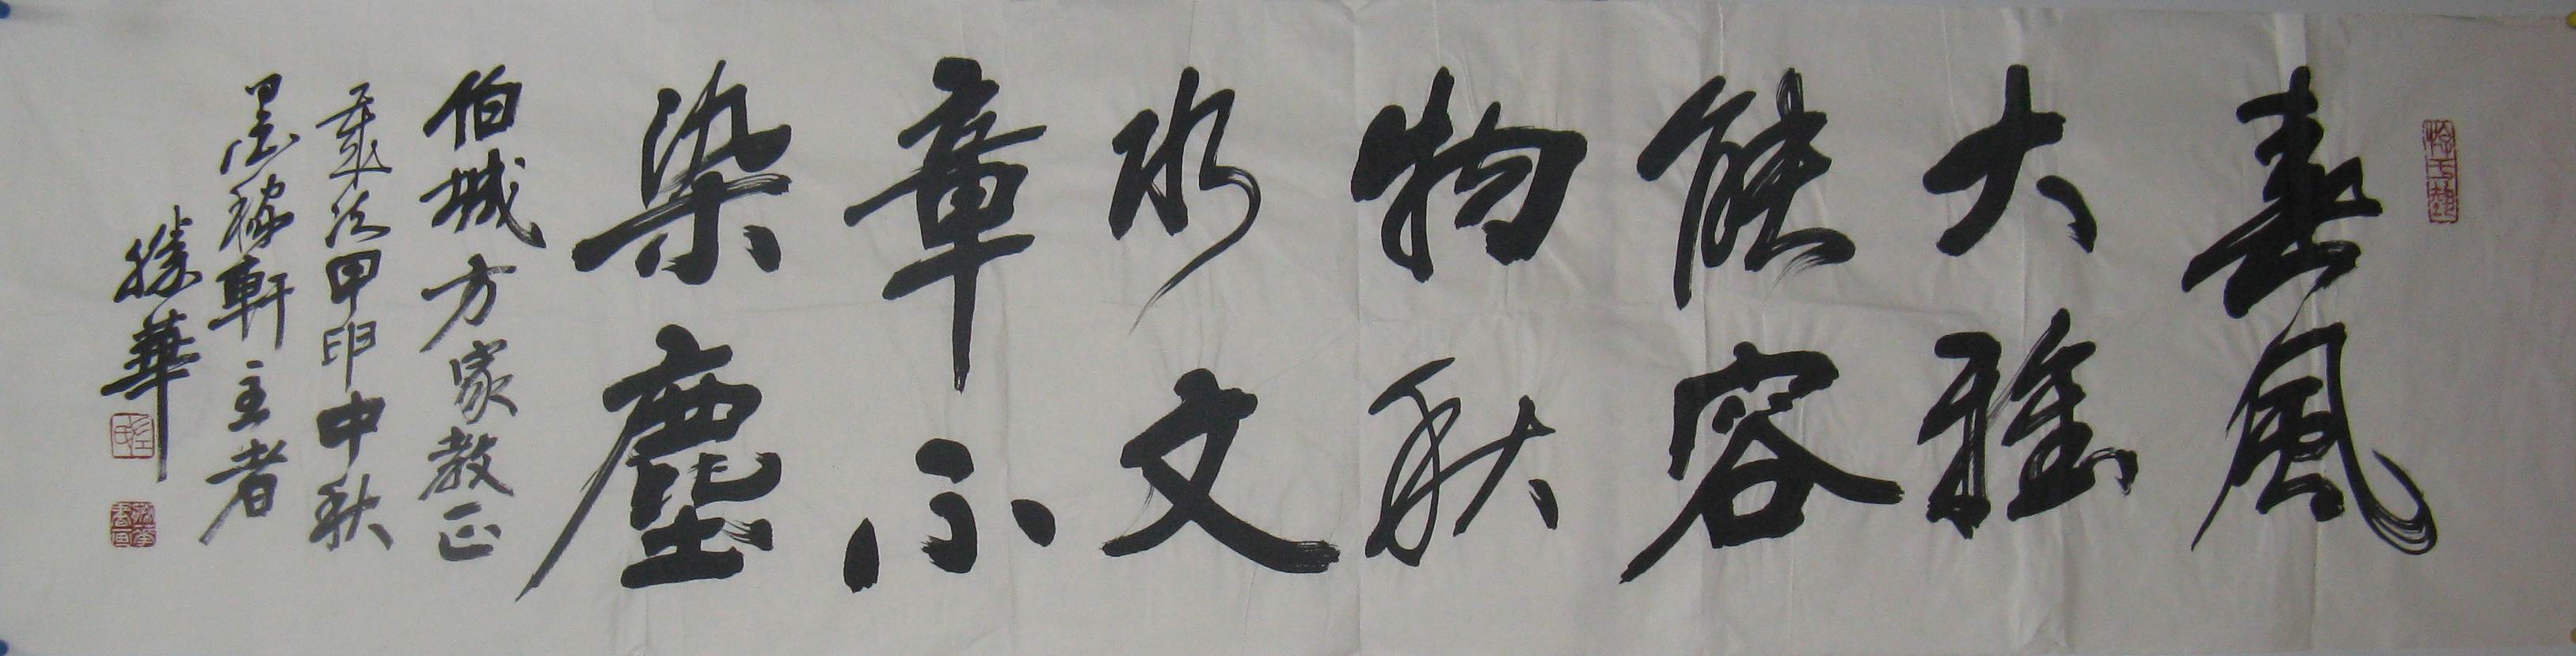 春風
大雅
能容
物秋
水文
章不
染塵
伯城方家教正
歲次甲申中秋
墨稼軒主者
勝華